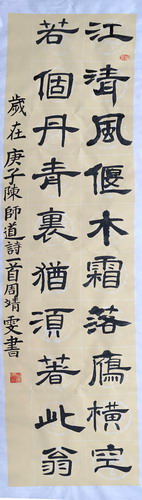 江清風偃木霜落鴈橫空
若個丹青裏猶須著此翁
歲在庚子陳師道詩一首周靖雯書